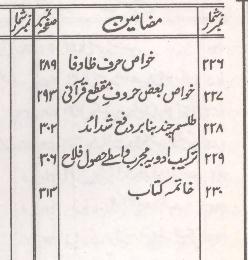 نمبر شمار مضامین صفحہ نمبر شمار
۲۲۶ خواص حرف ظاء وفا ۲۸۹
۲۲۷ خواص بعض حروف مقطع قرآنی ۲۹۳
۲۲۸ طلسم چند بنا بر دفع شدائد ۳۰۲
۲۲۹ ترکیب ادویہ مجرب واسطے حصول فلاح ۳۰۶
۲۳۰ خاتمہ کتاب ۳۱۳